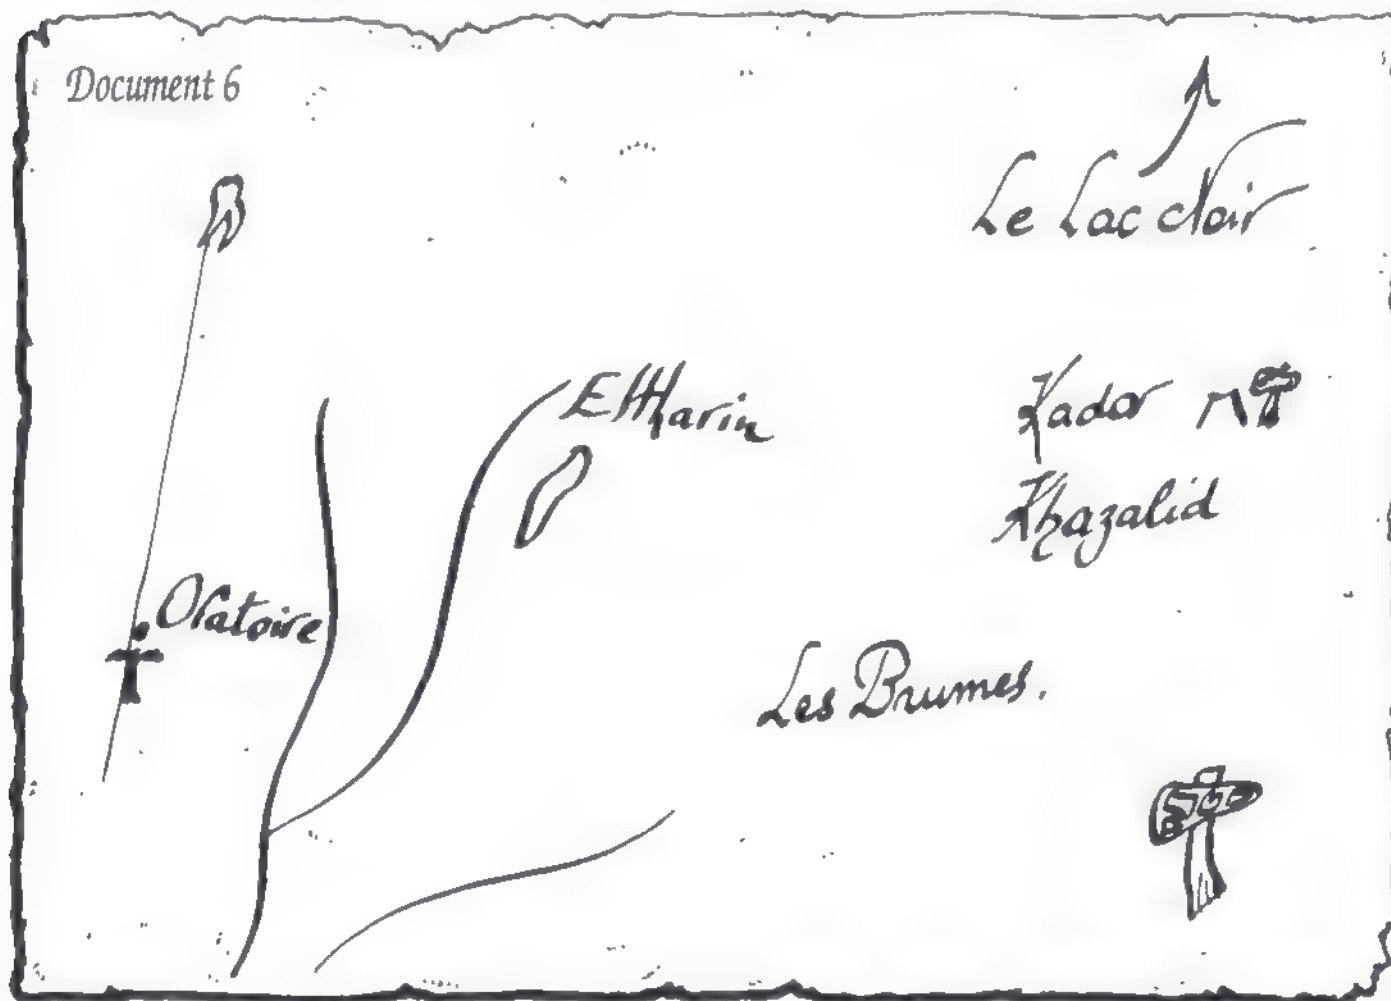 Document 6
Le Lac clair
Eltharin
Kador
Khazalid
Oratoire
Les Brumes.